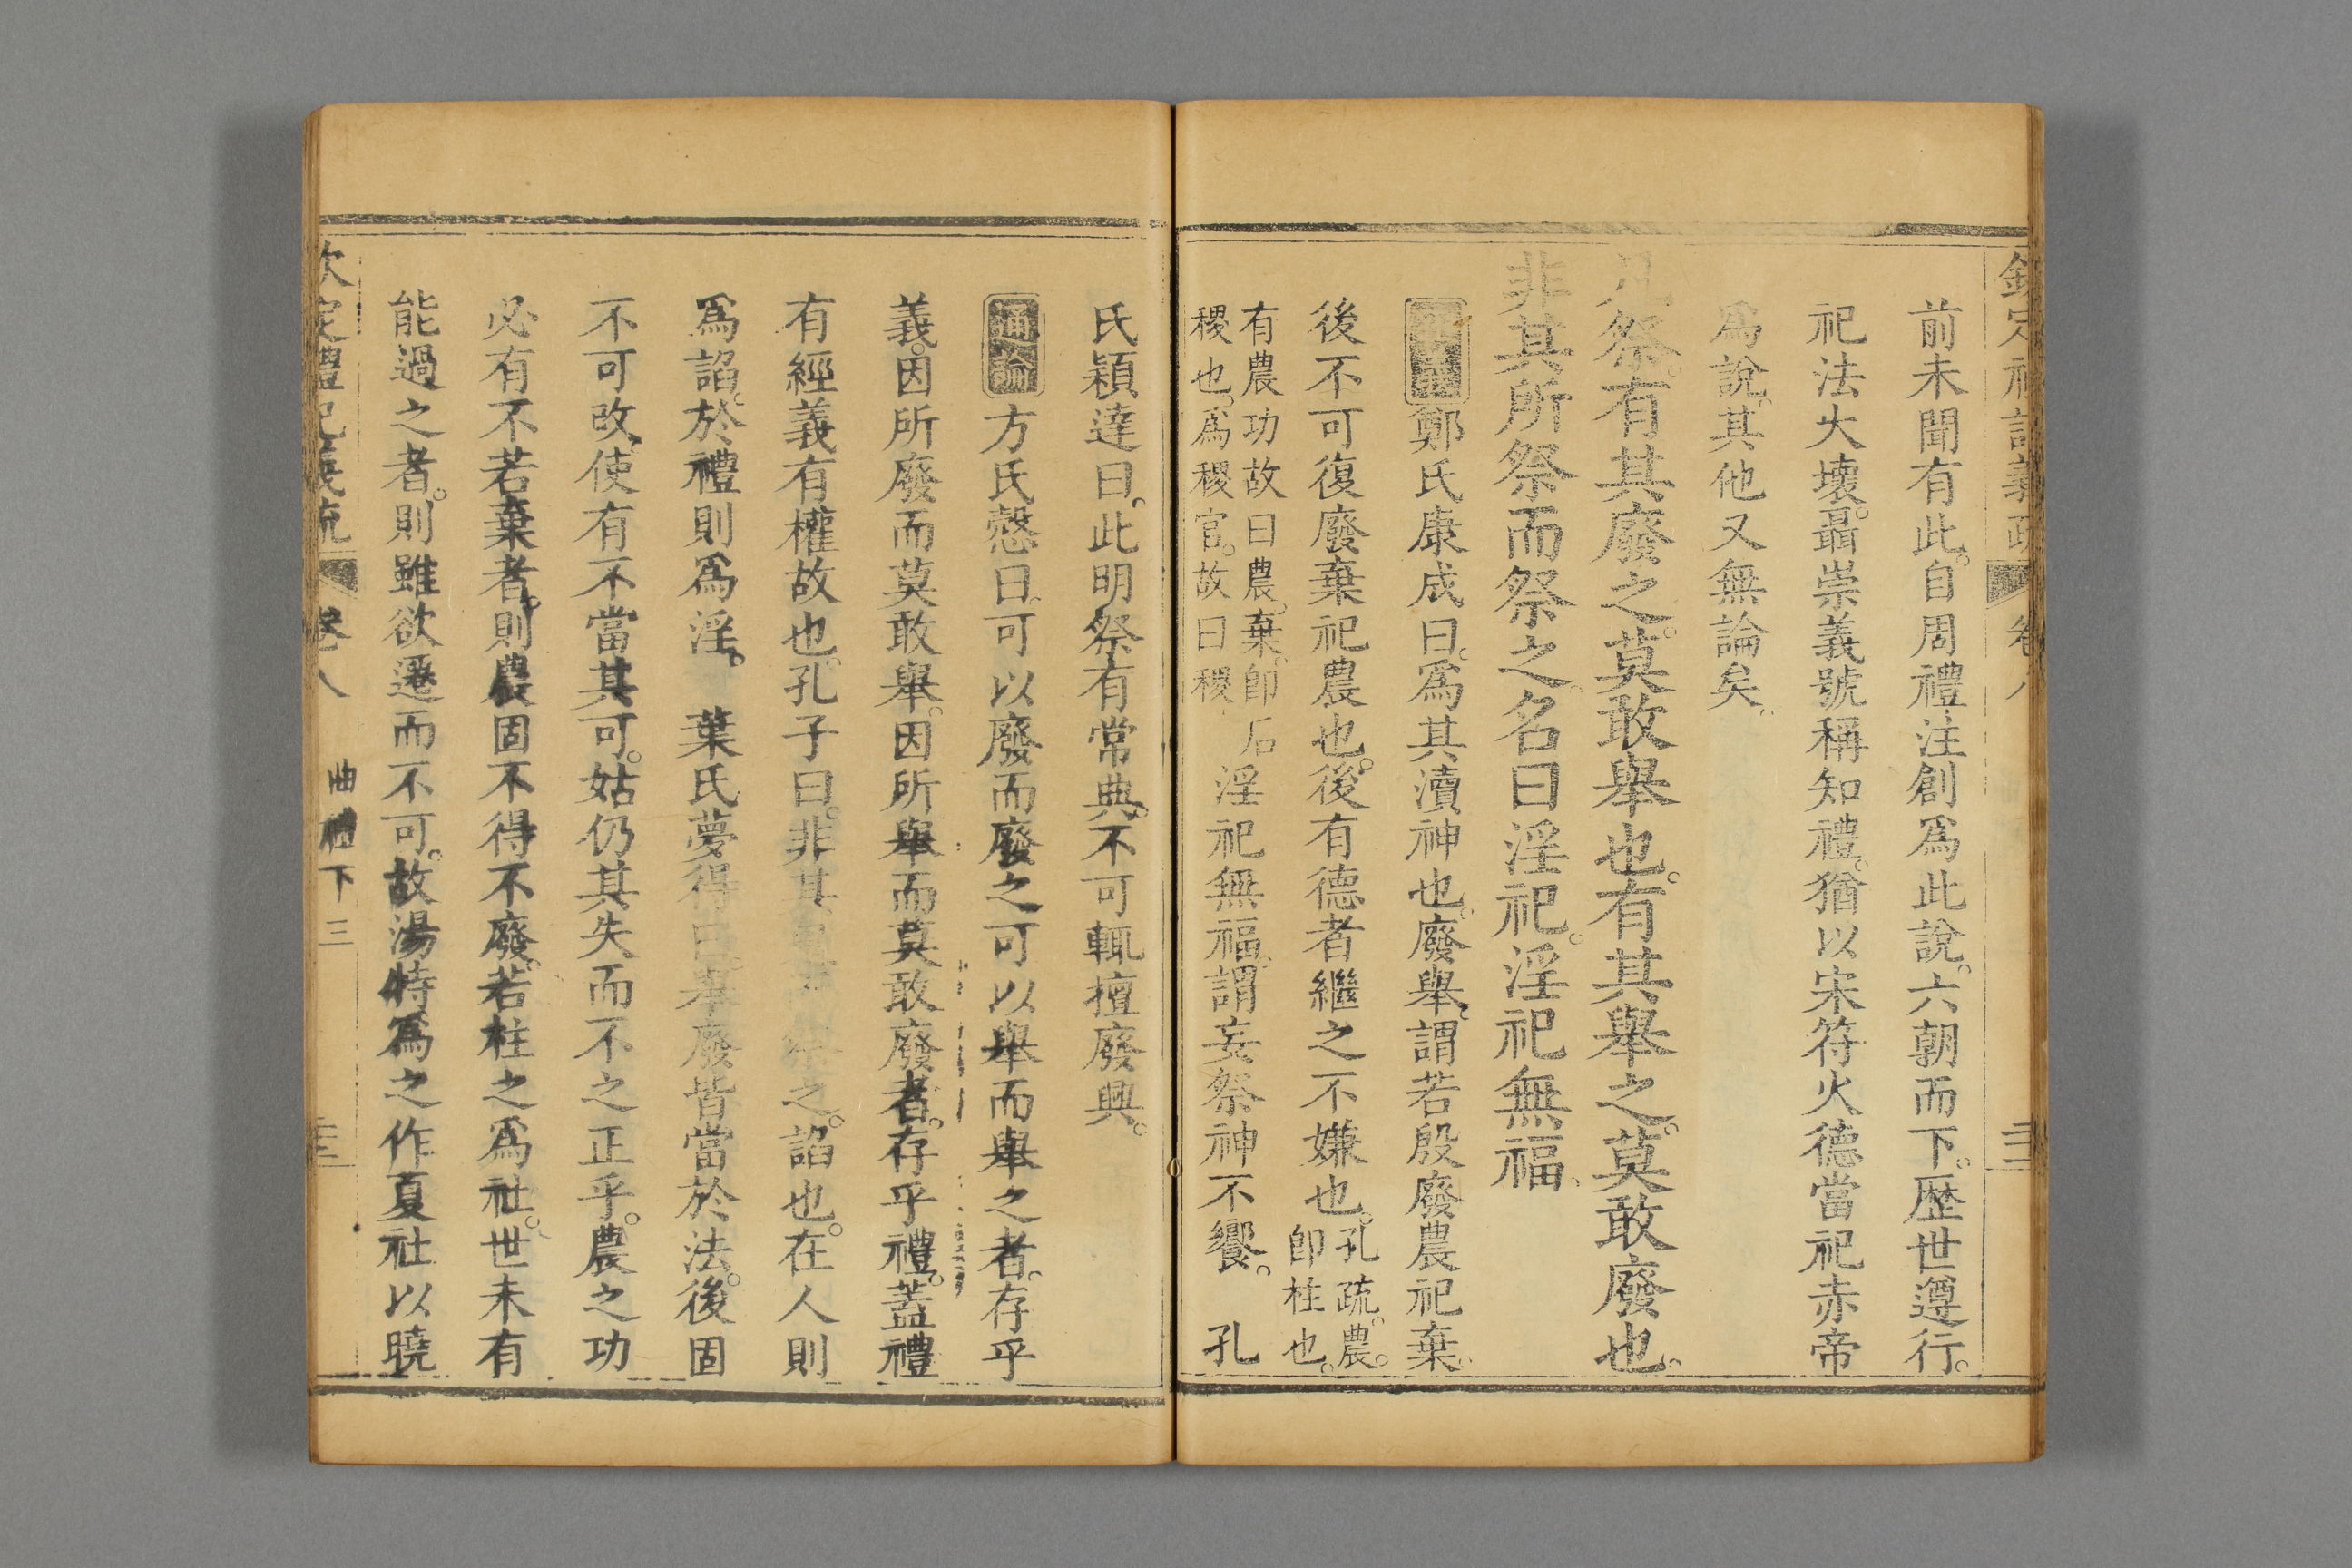 前未聞有此。自周禮注創爲此說。六朝而下。歷世遵行。
祀法大壞。聶崇義號稱知禮。猶以宋符火德當祀赤帝
爲說。其他又無論矣。
凡祭。有其廢之。莫敢舉也。有其舉之。莫敢廢也。
非其所祭而祭之。名曰淫祀。淫祀無福。
鄭氏康成曰。爲其瀆神也。廢舉。謂若殷廢農祀棄。
後不可復廢棄祀農也。後有德者繼之不嫌也。孔疏。農。
即柱也。
有農功故曰農。棄。即后
稷也。爲稷官。故曰稷。
淫祀無福。謂妄祭神不饗。 孔
氏穎達曰。此明祭有常典。不可輒擅廢興。
通論方氏慤曰。可以廢而廢之可以舉而舉之者。存乎
義。因所廢而莫敢舉。因所舉而莫敢廢者。存乎禮。蓋禮
有經義有權故也。孔子曰。非其之。諂也。在人則
爲諂。於禮則爲淫。 葉氏夢得曰。舉廢皆當於法。後固
不可改。使有不當其可。姑仍其失而不之正乎。農之功
必有不若棄者。則農固不得不廢。若柱之爲社。世未有
能過之者。則雖欲遷而不可。故湯特爲之作夏社以曉
欽定禮記義疏 卷八 曲禮下三